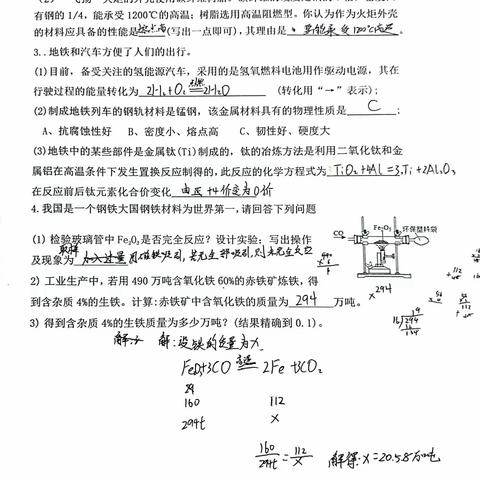 有钢的1/4,能承受1200℃的高温;树脂选用高温阻燃型。你认为作为火炬外壳
的材料应具备的性能是熔点高(写出一点即可),其理由是。要能承受1200℃高温。
3..地铁和汽车方便了人们的出行。
(1)目前,备受关注的氢能源汽车,采用的是氢氧燃料电池用作驱动电源,其在
行驶过程的能量转化为 2H₂+O₂ 点燃 2H₂O (转化用“→”表示);
(2)制成地铁列车的钢轨材料是锰钢,该金属材料具有的物理性质是 C ;
A、抗腐蚀性好 B、密度小、熔点高 C、韧性好、硬度大
(3)地铁中的某些部件是金属钛(Ti)制成的,钛的冶炼方法是利用二氧化钛和金
属铝在高温条件下发生置换反应制得的,此反应的化学方程式为 TiO₂+4Al=3Ti+2Al₂O₃
在反应前后钛元素化合价变化 由正+4价变为0价
4.我国是一个钢铁大国钢铁材料为世界第一,请回答下列问题
(1) 检验玻璃管中Fe₂O₃是否完全反应?设计实验:写出操作
及现象为 取样 用磁铁吸引,若完全被吸引,则
CO Fe₂O₃ 环保塑料袋
2) 工业生产中,若用490万吨含氧化铁60%的赤铁矿炼铁,得
到含杂质4%的生铁。计算:赤铁矿中含氧化铁的质量为 294 万吨。
3) 得到含杂质4%的生铁质量为多少万吨?(结果精确到0.1)。
解:设铁的质量为X.
Fe₂O₃+3CO 高温 2Fe+3CO₂
160 112
294t X
160/294t=112/X 解得:X=20.58万吨